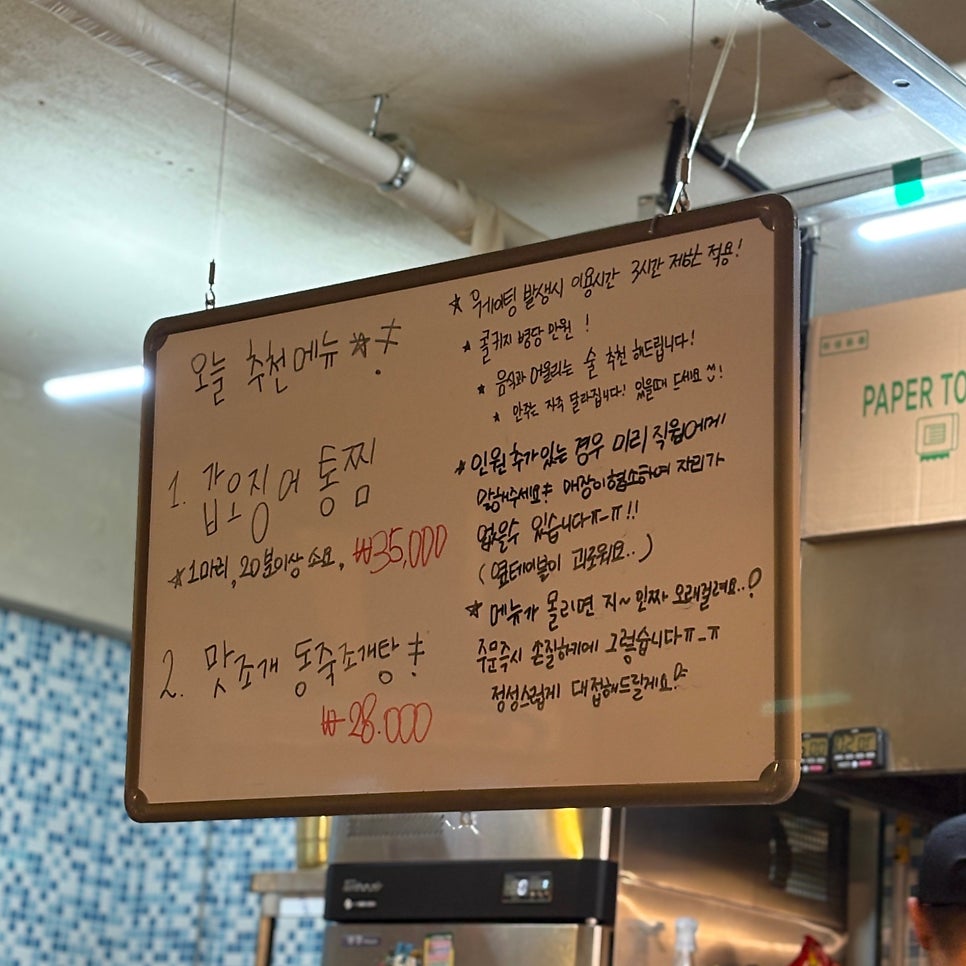 오늘 추천메뉴 ☆
1. 갑오징어 통찜
☆ 1마리, 20분이상 소요, ₩35,000
2. 맛조개 동죽조개탕
₩28.000
☆ 웨이팅 발생시 이용시간 3시간 제한 적용!
☆ 콜키지 병당 만원 !
☆ 음식과 어울리는 술 추천 해드립니다!
☆ 안주는 자주 달라집니다! 있을때 드세요 !
☆ 인원 추가 있는 경우 미리 직원에게
말해주세요 매장이 협소하여 자리가
없을수 있습니다ㅠ_ㅠ!!
(옆테이블이 괴로워요..)
☆ 메뉴가 몰리면 지~인짜 오래걸려요..
주문즉시 손질하기에 그렇습니다ㅠ_ㅠ
정성스럽게 대접해드릴게요
PAPER TO